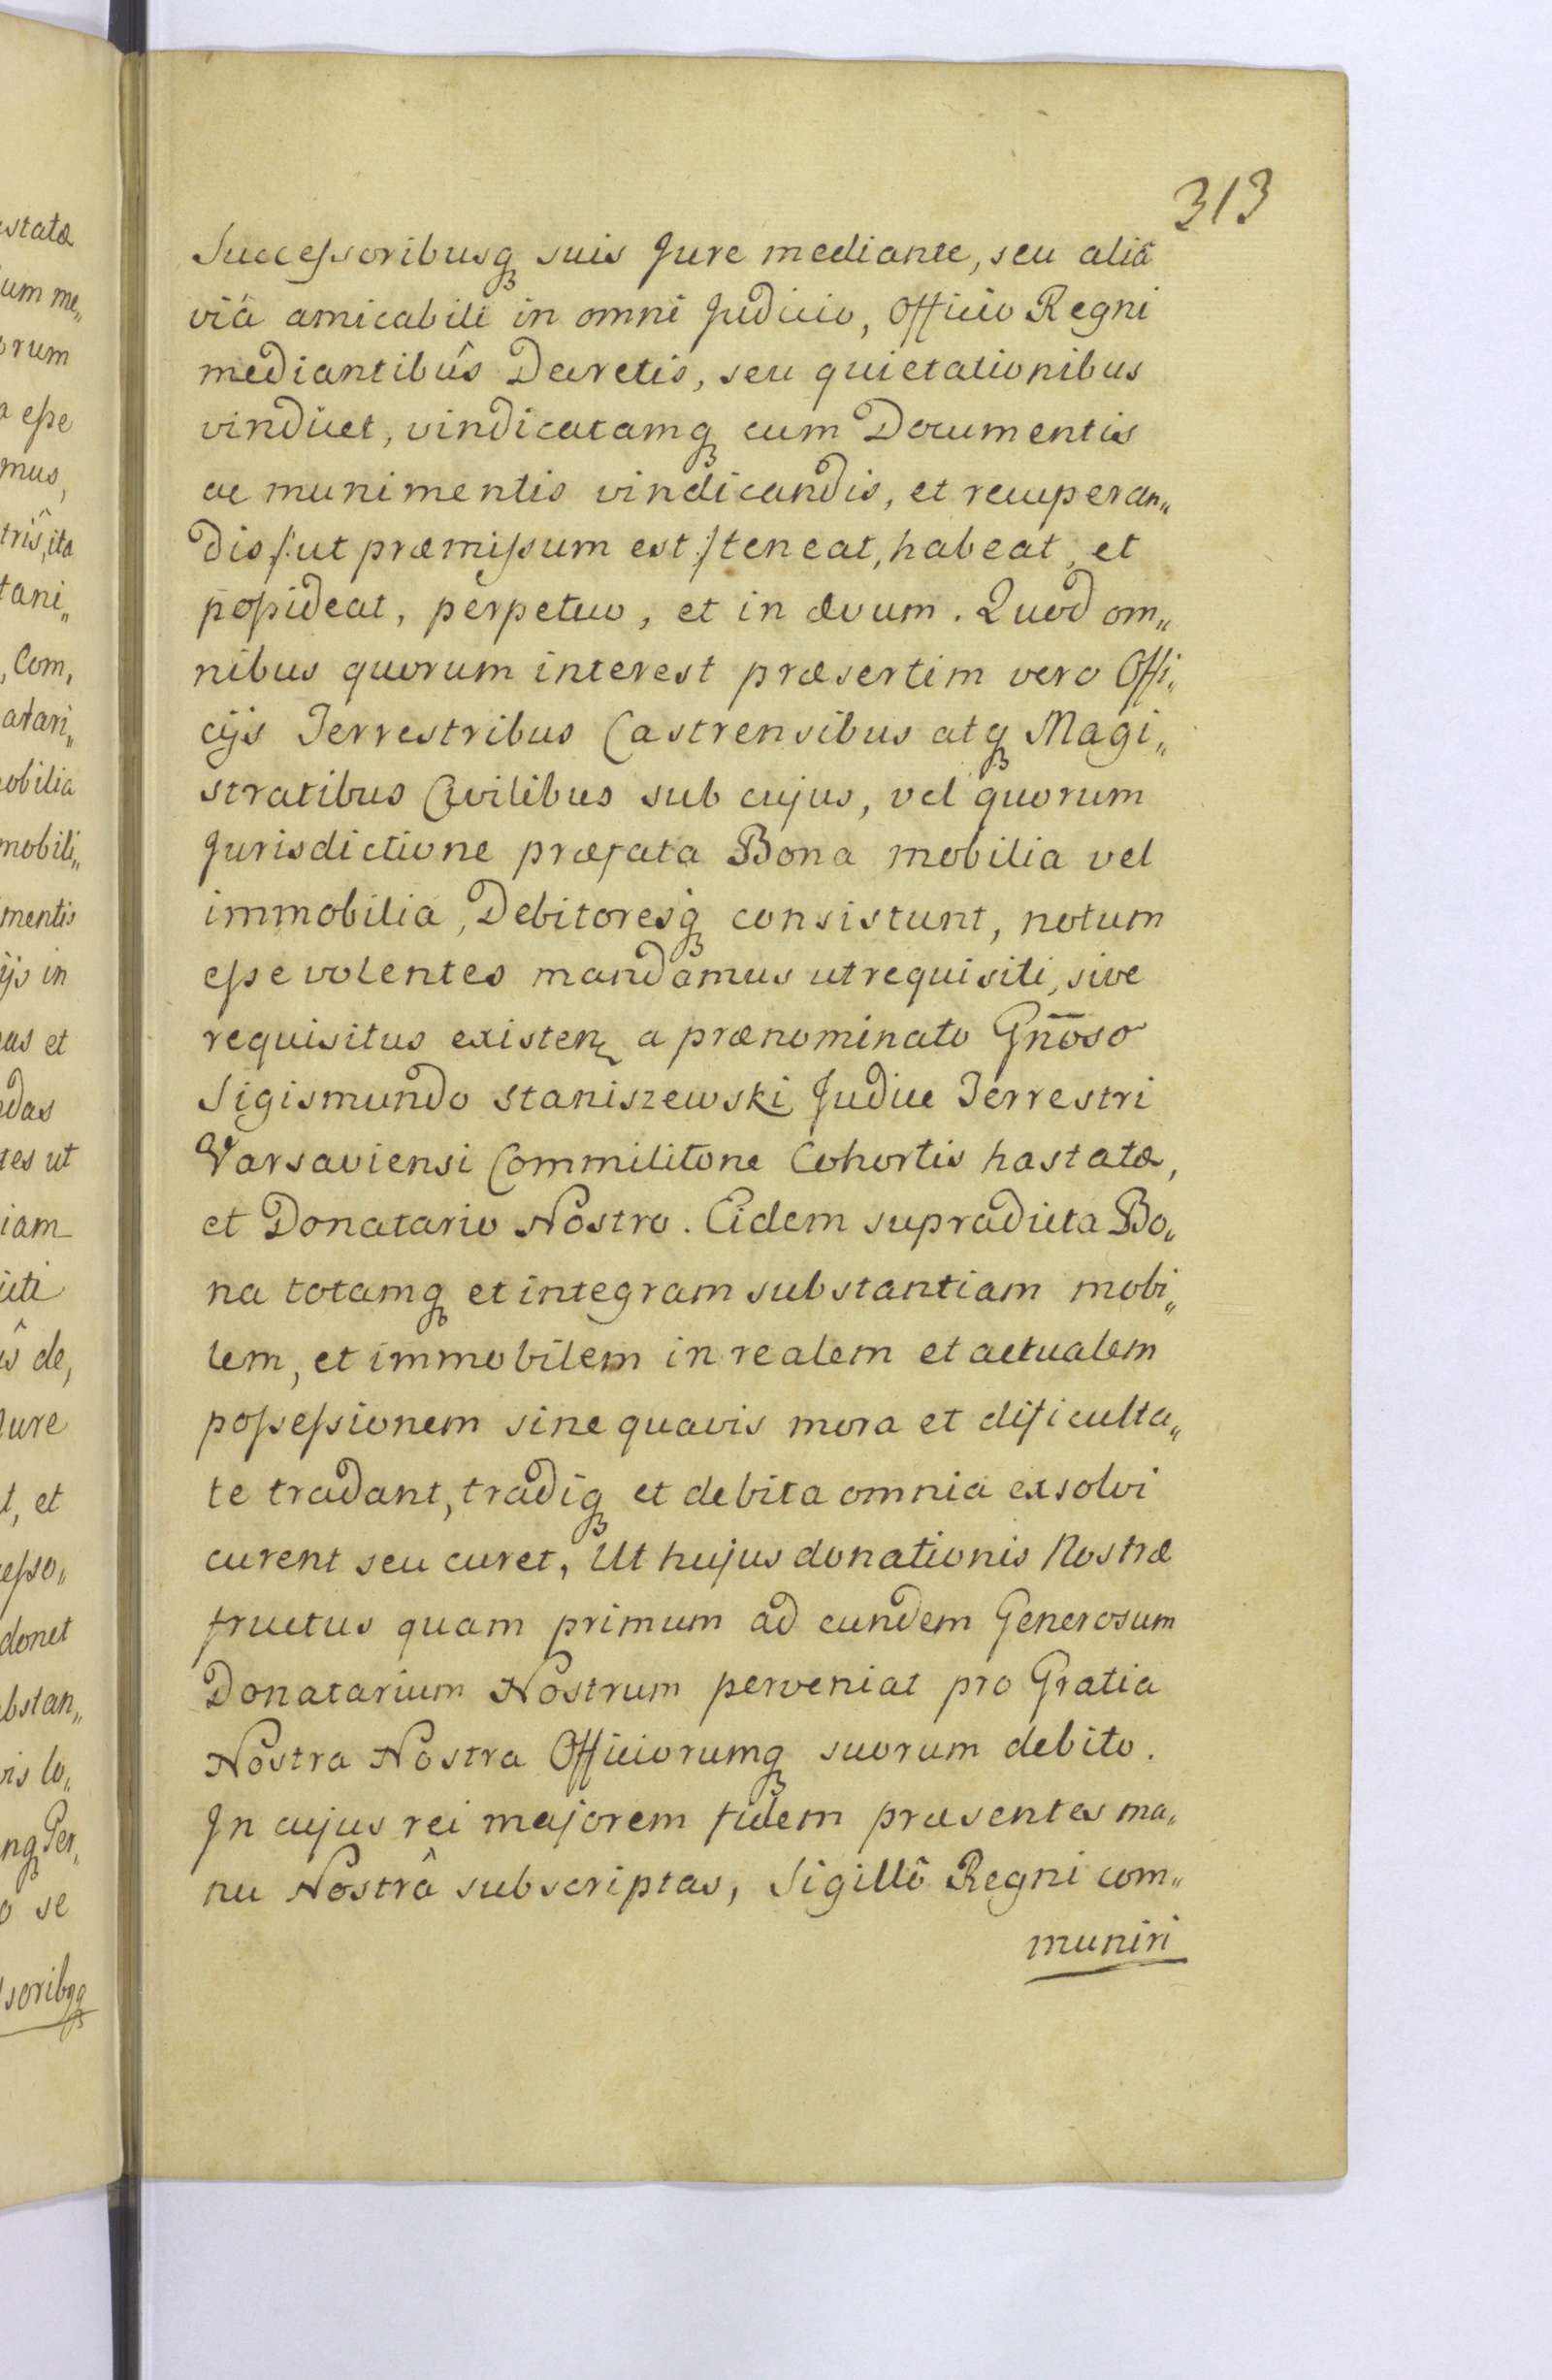 313
Successoribusq suis Jure mediante, seu aliâ
viâ amicabili in omni Judicio, Officio Regni
mediantibûs Decretis, seu quietationibus
vindicet, vindicatamq cum Documentis
ac munimentis vindicandis, et recuperan„
dis /:ut præmissum est:/ teneat, habeat, et
possideat, perpetuo, et in ævum. Quod om„
nibus quorum interest præsertim vero Offi„
cijs Terrestribus Castrensibus atq Magi„
stratibus Civilibus sub cujus, vel quorum
Jurisdictione præfata Bona mobilia vel
immobilia, Debitoresq consistunt, notum
esse volentes mandamus ut requisiti, sive
requisitus existen a prænominato Gn̄oso
Sigismundo Staniszewski Judice Terrestri
Varsaviensi Commilitone Cohortis hastatæ,
et Donatario Nostro. Eidem supradicta Bo„
na totamq et integram substantiam mobi„
lem, et immobilem in realem et actualem
possessionem sine quavis mora et dificulta„
te tradant, tradiq et debita omnia exsolvi
curent seu curet, Ut hujus donationis Nostræ
fructus quam primum ad eundem Generosum
Donatarium Nostrum perveniat pro Gratia
Nostra Nostra Officiorumq suorum debito.
In cujus rei majorem fidem præsentes ma„
nu Nostrâ subscriptas, Sigillô Regni com„
muniri